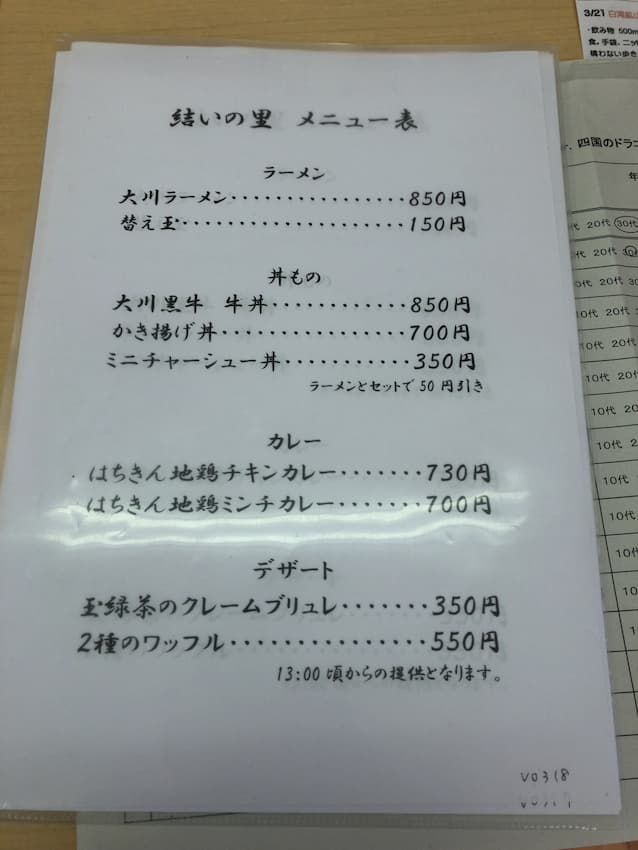 結いの里 メニュー表
ラーメン
大川ラーメン················850円
替え玉···················150円
丼もの
大川黒牛 牛丼············850円
かき揚げ丼················700円
ミニチャーシュー丼···········350円
ラーメンとセットで50円引き
カレー
はちきん地鶏チキンカレー·······730円
はちきん地鶏ミンチカレー·······700円
デザート
玉緑茶のクレームブリュレ·······350円
2種のワッフル···············550円
13:00頃からの提供となります。
V0318
3/21
・飲み物 500m
食。手袋、ニッ
構わない歩き
四国のドラゴ
年
代 20代 30代
代 20代 30
20代 30
20代
10代 20代
10代 20代
10代 20
10代 20
10代 2
10代 2
10代
10代
10